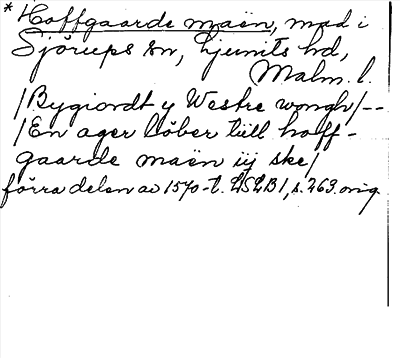 * Hoffgaarde maën, mad i
Sjörups sn, Ljunits hd,
Malm. l.
/Bygiordt y Westre wongh/--
/En ager löber till hoff-
gaarde maën iij ske/
förra delen av 1570-t. LSLB1, s. 263. orig